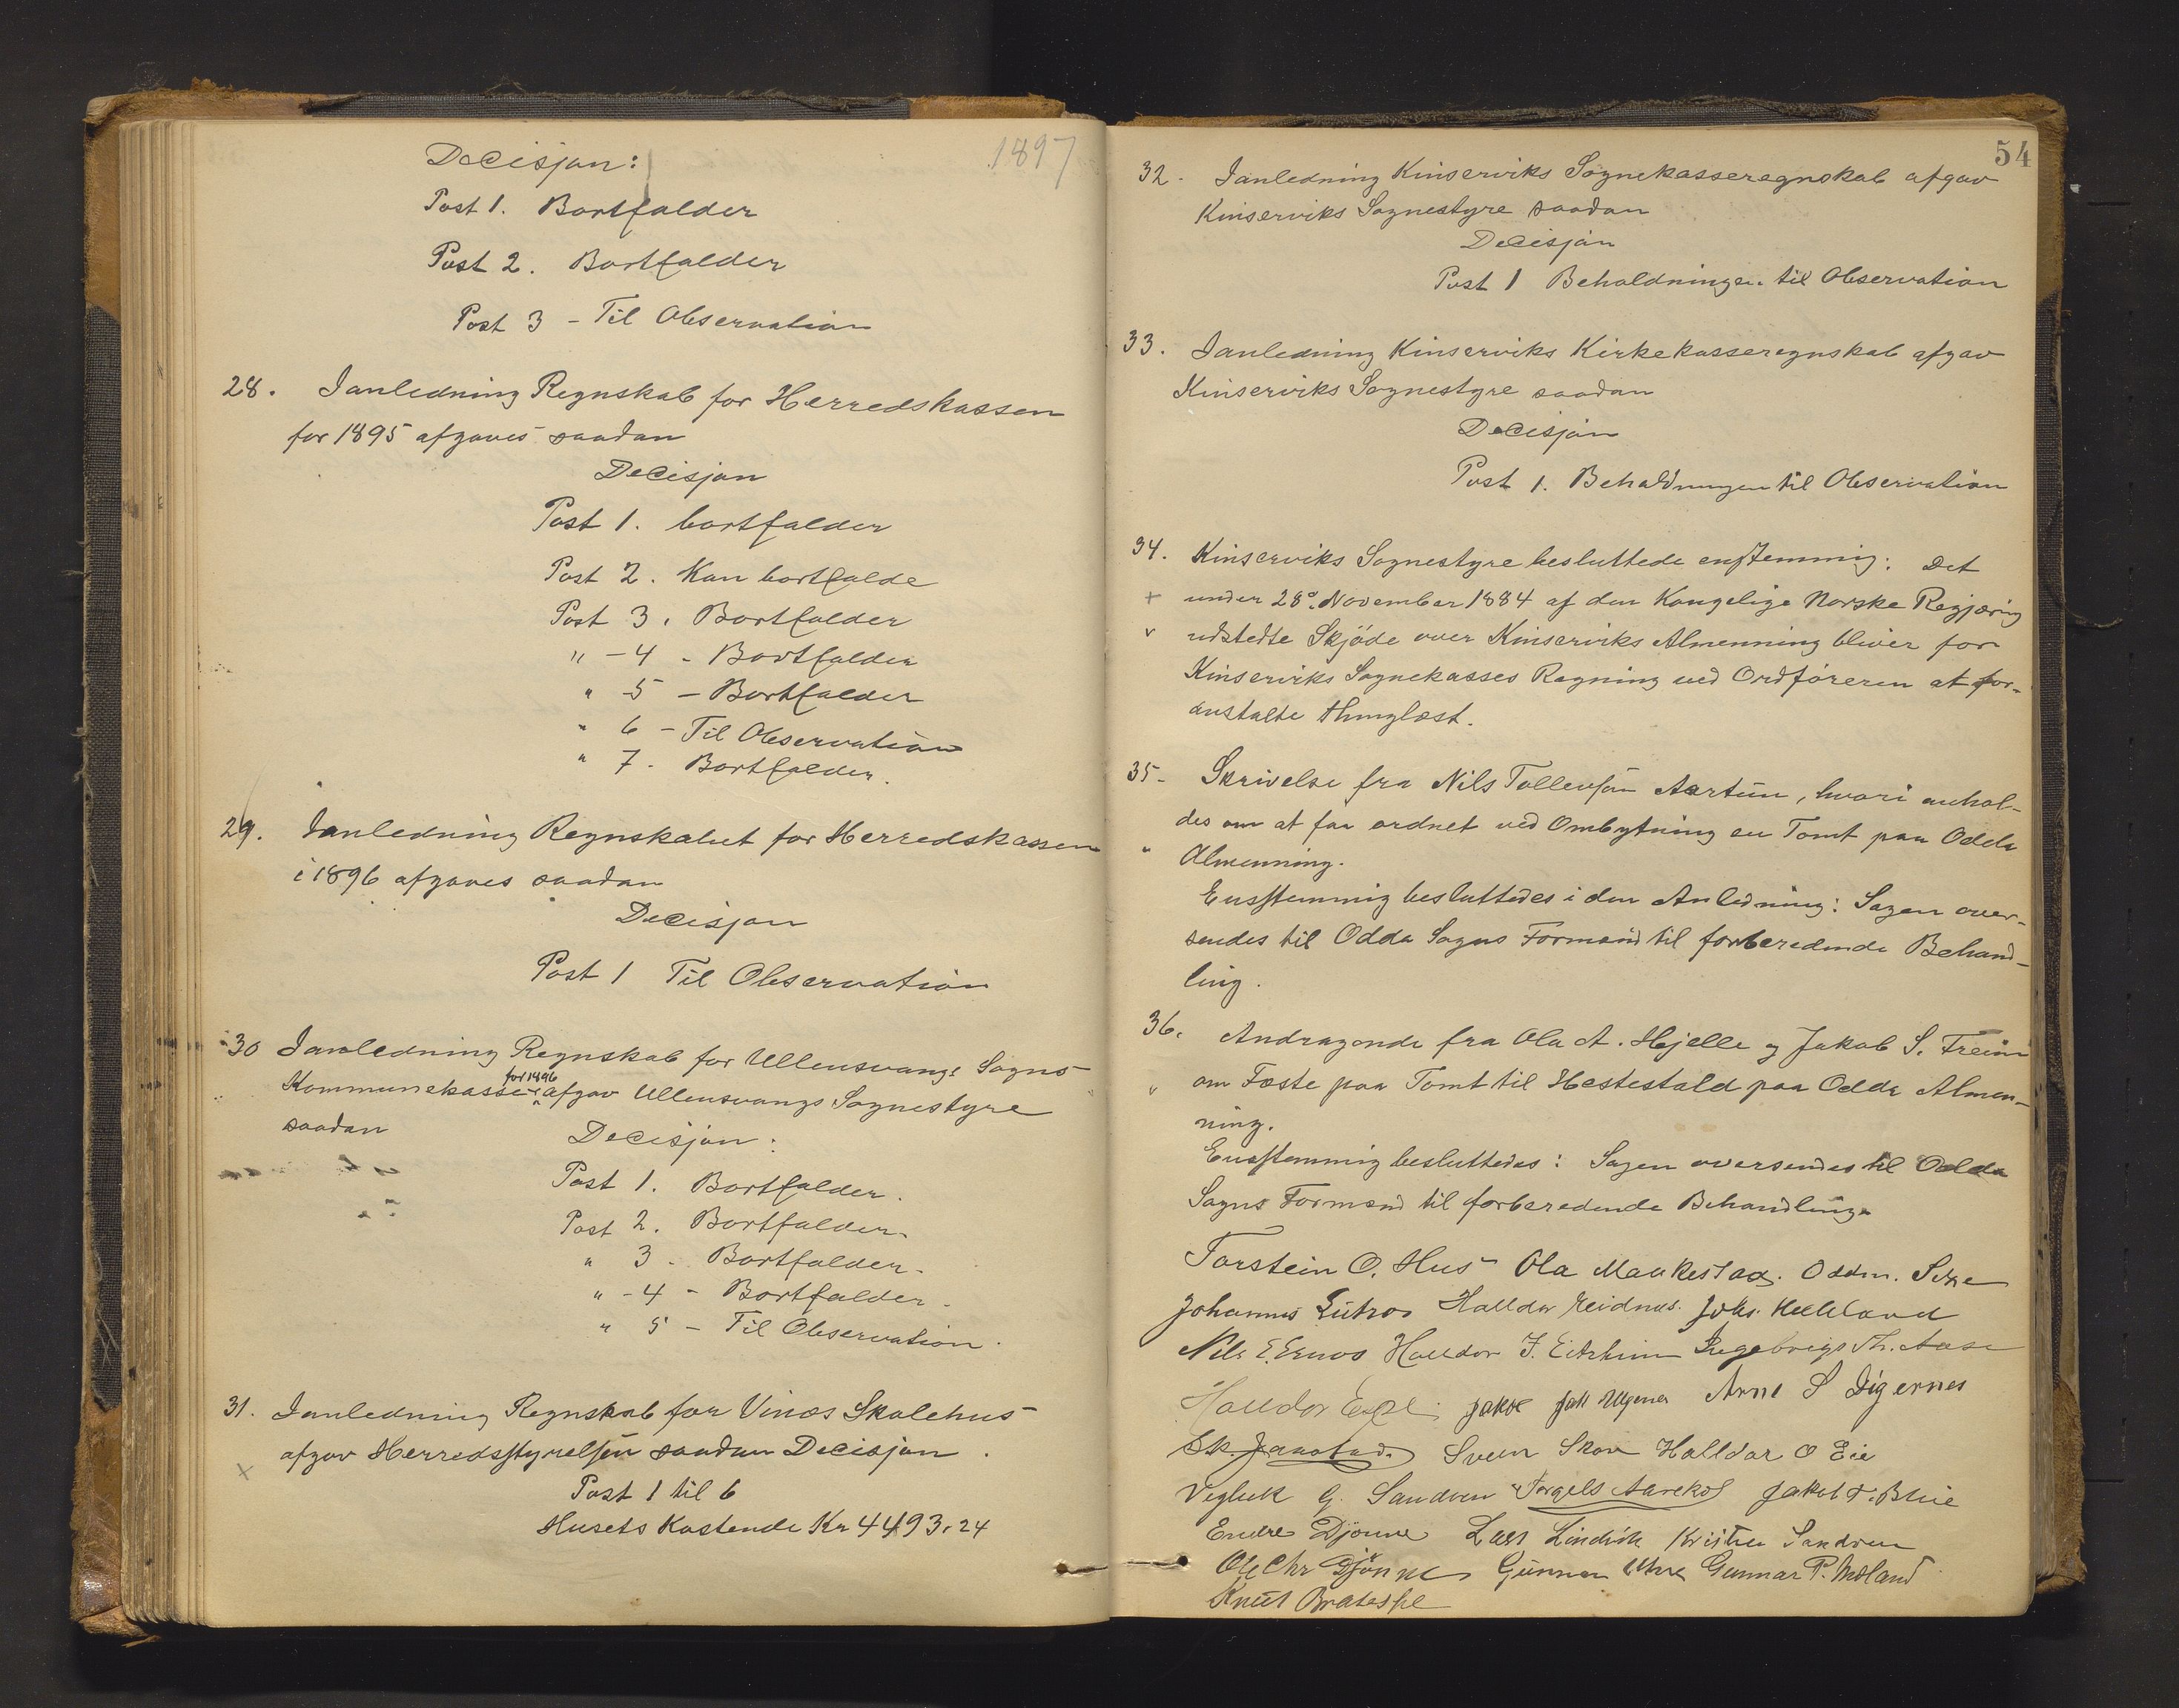 1897
Decisjon:
Post 1. Bortfalder
Post 2. Bortfalder
Post 3 - Til Observation
28. Ianledning Regnskab for Herredskassen
for 1895 afgaves saadan
Decisjon
Post 1. bortfalder
Post 2. Kan bortfalde
Post 3. Bortfalder
" - 4 - Bortfalder
" - 5 - Bortfalder
" 6 - Til Observation
" 7 - Bortfalder.
29. Ianledning Regnskabet for Herredskassen
i 1896 afgaves saadan
Decisjon
Post 1 Til Observation
30 Ianledning Regnskab for Ullensvangs Sogns
for 1896
Kommunekasse afgav Ullensvangs Sognestyre
saadan
Decisjon:
Post 1. Bortfalder.
Post 2. Bortfalder.
" 3 - Bortfalder.
" - 4 - Bortfalder.
" 5 - Til Observation.
31. Ianledning Regnskab for Vinæs Skolehus
afgav Herredsstyrelsen saadan Decisjon.
Post 1 til 6
Husets Kostende Kr 4493,24
54
32. Ianledning Kinserviks Sognekasseregnskab afgav
Kinserviks Sognestyre saadan
Decisjon
Post 1 Beholdningen til Observation
33. Ianledning Kinserviks Kirkekasseregnskab afgav
Kinserviks Sognestyre saadan
Decisjon
Post 1. Beholdningen til Observation
34. Kinserviks Sognestyre besluttede enstemmig: Det
under 28de November 1884 af den Kongelige Norske Regjæring
udstedte Skjöde over Kinserviks Almenning bliver for
Kinserviks Sognekasses Regning ved Ordföreren at for-
anstalte thinglæst.
35- Skrivelse fra Nils Tollevsön Aartun, hvori anhol-
des om at faa ordnet ved Ombytning en Tomt paa Odda
Almenning.
Ensstemmig besluttedes i den Anledning: Sagen over-
sendes til Odda Sogns Formand til forberedende Behand-
ling.
36. Andragende fra Ola A. Hjelle og Jakob S. Freim
om Fæste paa Tomt til Hestestald paa Odda Almen-
ning.
Ensstemmig besluttedes: Sagen oversendes til Odda
Sogns Formand til forberedende Behandling.
Torstein O. Hus Ola Maakestad. Oddm.
Johannes Lutro Halldor Reidnes. Johs.
Nils E. Ernes Halldor J. Eitrheim Ingebrigt Th. Aase
Halldor Espe Arne S Digernes
Svein Skare Halldor O Eie
Vigleik G. Sandven Torgels Aarekol Jakob T. Blie
Endre Djönne Lars Lindvik Kristen Sandven
Ole Chr Djönne Gunnar Gunnar P. Moland
Knut Bratespe